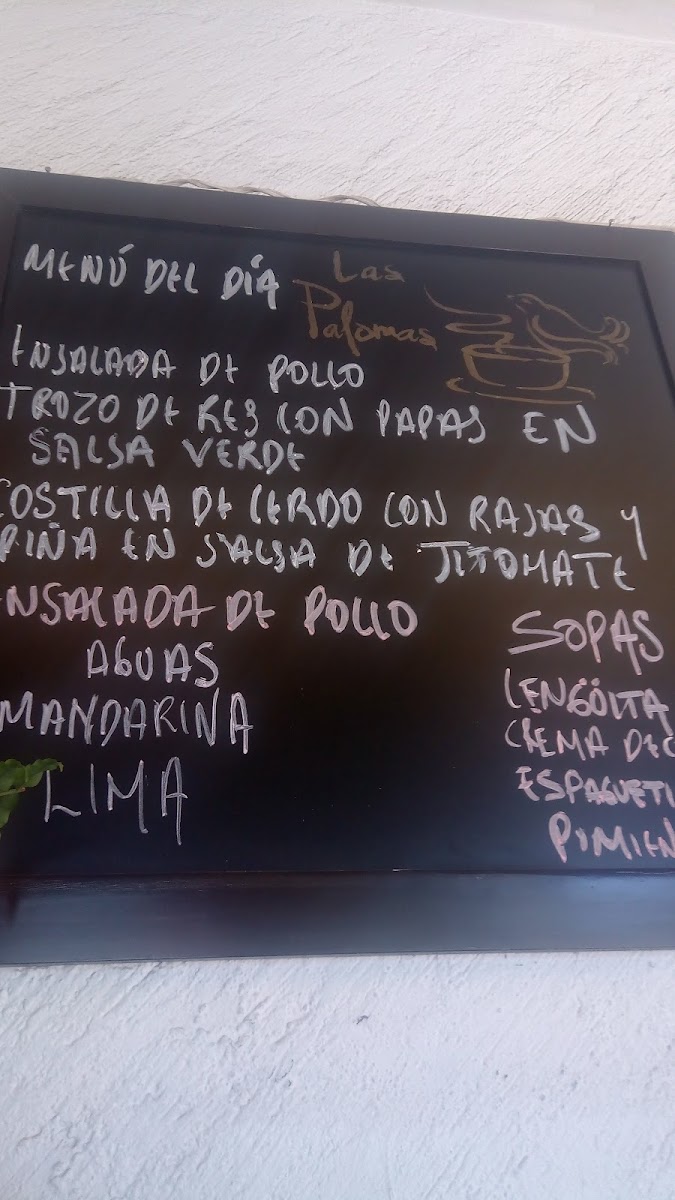 MENÚ DEL DÍA
Las
Palomas
ENSALADA DE POLLO
TROZO DE RES CON PAPAS EN
SALSA VERDE
COSTILLA DE CERDO CON RAJAS Y
PIÑA EN SALSA DE JITOMATE
ENSALADA DE POLLO
AGUAS
MANDARINA
LIMA
SOPAS
CREMA DE
ESPAGUETI
PIMIEN